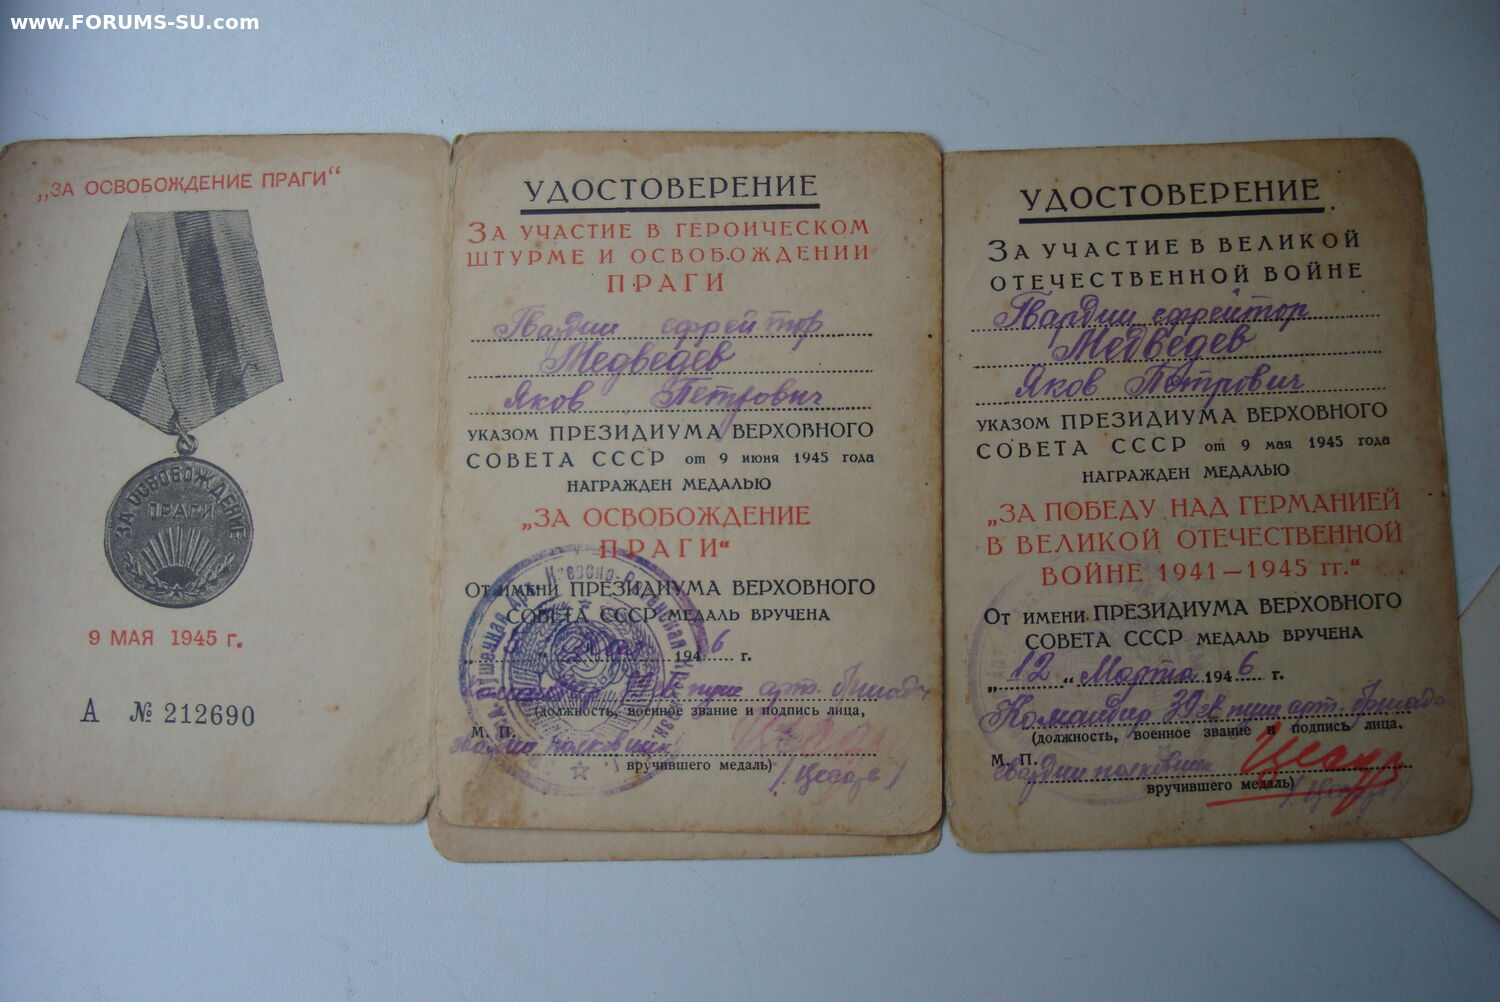 www.FORUMS-SU.com
„ЗА ОСВОБОЖДЕНИЕ ПРАГИ“
ЗА ОСВОБОЖДЕНИЕ
ПРАГИ
9 МАЯ 1945 г.
А № 212690
УДОСТОВЕРЕНИЕ
ЗА УЧАСТИЕ В ГЕРОИЧЕСКОМ
ШТУРМЕ И ОСВОБОЖДЕНИИ
ПРАГИ
Гвардии ефрейтор
Медведев
Яков Петрович
УКАЗОМ ПРЕЗИДИУМА ВЕРХОВНОГО
СОВЕТА СССР от 9 июня 1945 года
НАГРАЖДЕН МЕДАЛЬЮ
„ЗА ОСВОБОЖДЕНИЕ
ПРАГИ“
От имени ПРЕЗИДИУМА ВЕРХОВНОГО
СОВЕТА СССР МЕДАЛЬ ВРУЧЕНА
194 6 г.
пуш арт. бригады
(должность, военное звание и подпись лица,
М. П.
гвардии полковник
вручившего медаль)
УДОСТОВЕРЕНИЕ
ЗА УЧАСТИЕ В ВЕЛИКОЙ
ОТЕЧЕСТВЕННОЙ ВОЙНЕ
Гвардии ефрейтор
Медведев
Яков Петрович
УКАЗОМ ПРЕЗИДИУМА ВЕРХОВНОГО
СОВЕТА СССР от 9 мая 1945 года
НАГРАЖДЕН МЕДАЛЬЮ
„ЗА ПОБЕДУ НАД ГЕРМАНИЕЙ
В ВЕЛИКОЙ ОТЕЧЕСТВЕННОЙ
ВОЙНЕ 1941—1945 гг.“
От имени ПРЕЗИДИУМА ВЕРХОВНОГО
СОВЕТА СССР МЕДАЛЬ ВРУЧЕНА
„12“ Марта 194 6 г.
Командир 39 гв пуш арт. бригады
(должность, военное звание и подпись лица,
М. П.
гвардии полковник
вручившего медаль)